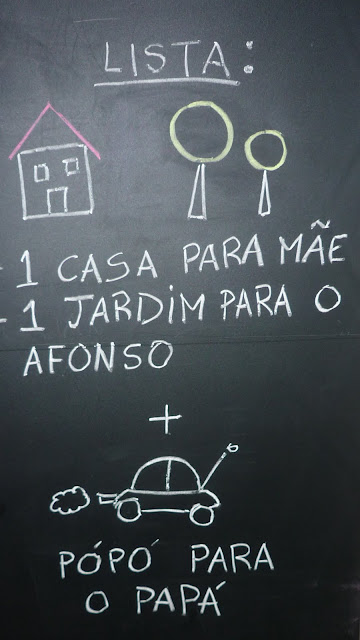 LISTA:
- 1 CASA PARA MÃE
- 1 JARDIM PARA O
AFONSO
+
PÓPÓ PARA
O PAPÁ